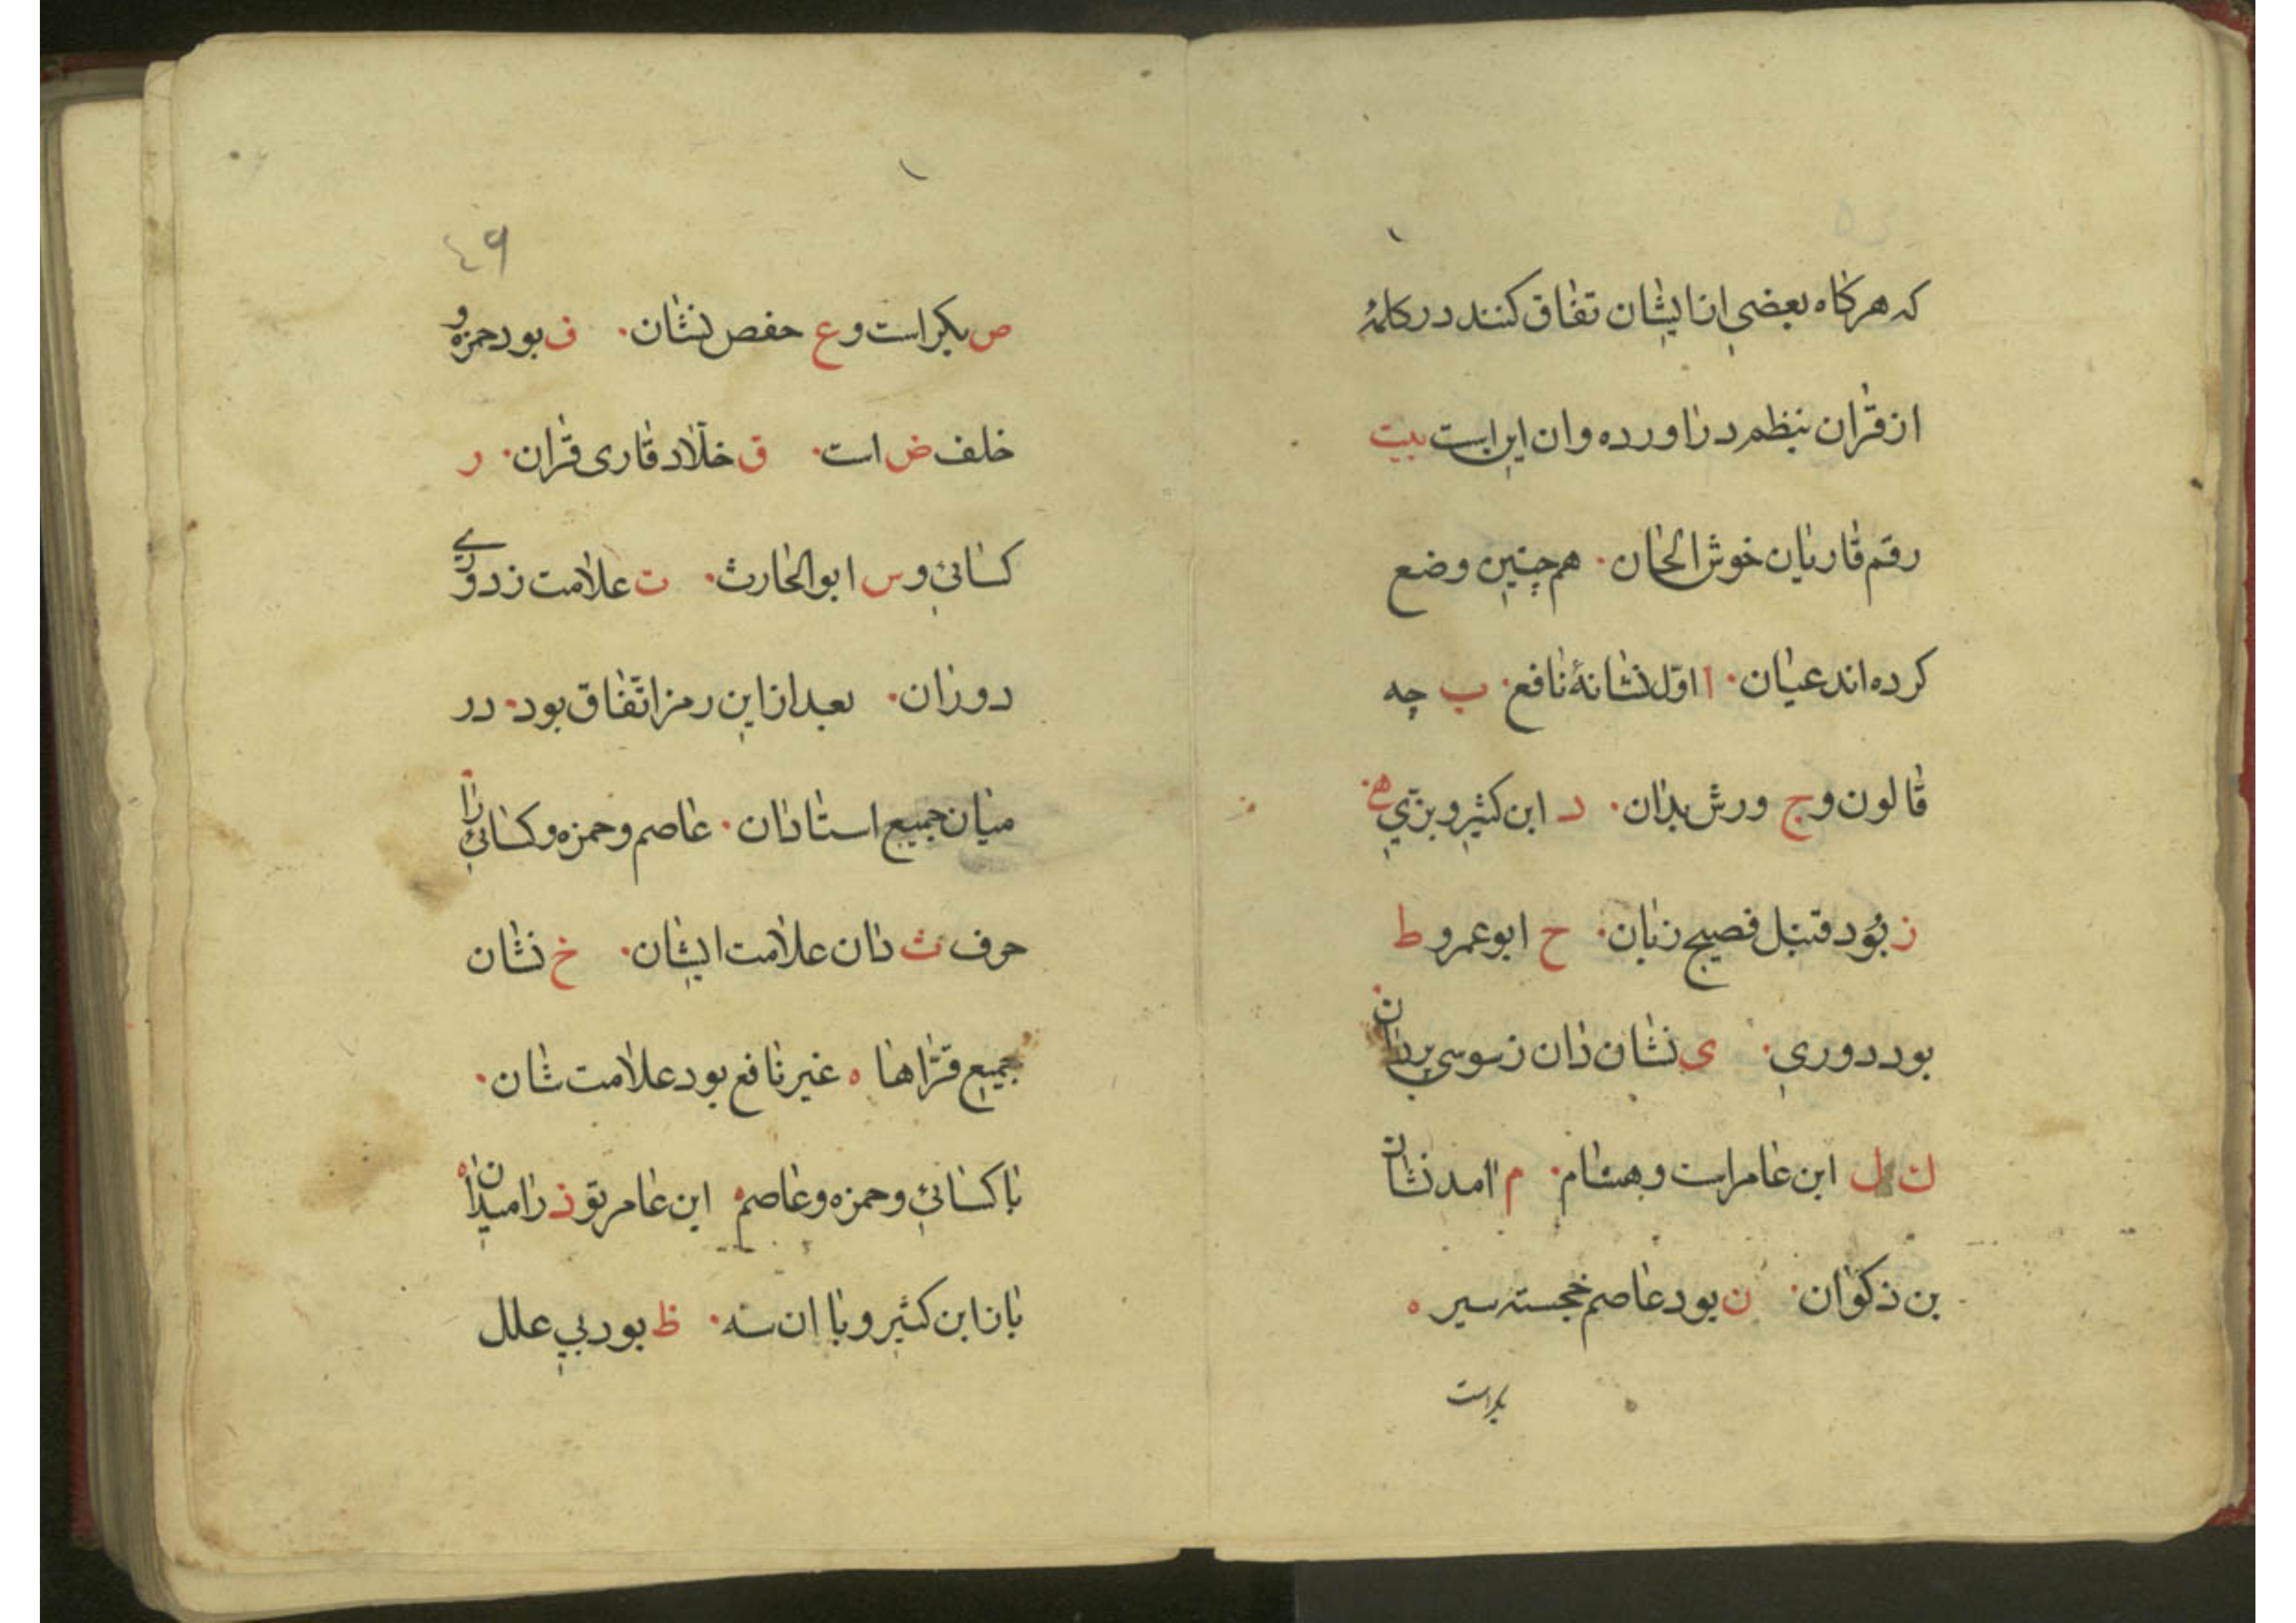 که هرکاه بعضی از ایشان تفاق کنند در کلمهٔ
از قرآن بنظم در اورده و ان این است بیت
رقم قاریان خوش الحان هم چنین وضع
کرده اند عیان ا اوّل نشانهٔ نافع ب چه
قالون و ج ورش بدان د ابن کثیر و بزّی ه
ز بُود قنبل فصیح زبان ح ابو عمرو ط
بود دوری ی نشان دان ز سوسی بردان
ک ل ابن عامر است و هشام م امد نشان
بن ذکوان ن بود عاصم خجسته سیر
بکر است
٤٩
ص بکر است و ع حفص نشان ف بود حمزه و
خلف ض است ق خلّاد قاری قرآن ر
کسائی و س ابو الحارث ت علامت ز دوری
دوران بعد از این رمز اتّفاق بود در
میان جمیع استادان عاصم و حمزه و کسائی را
حرف ث دان علامت ایشان خ نشان
جمیع قرّاها غیر نافع بود علامت شان
با کسائی و حمزه و عاصم ابن عامر تو ذ را میدان
باز ابن کثیر و با ان سه ظ بود بی علل